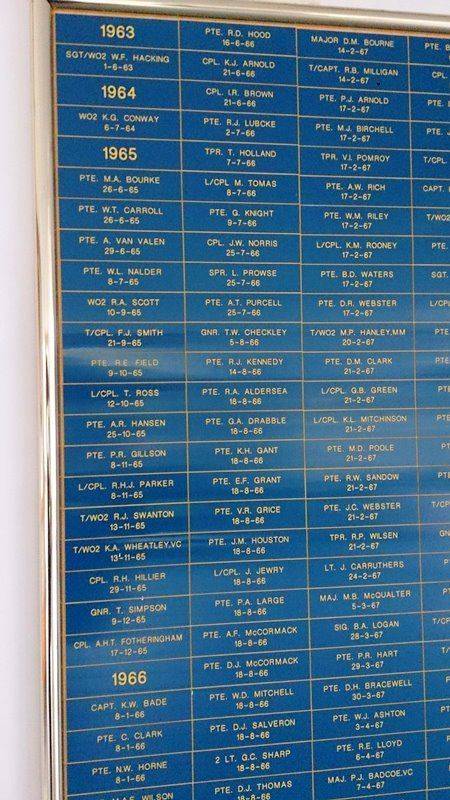 1963
SGT/WO2 W.F. HACKING
1-6-63
1964
WO2 K.G. CONWAY
6-7-64
1965
PTE. M.A. BOURKE
26-6-65
PTE. W.T. CARROLL
26-6-65
PTE. A. VAN VALEN
29-6-65
PTE. W.L. NALDER
8-7-65
WO2 R.A. SCOTT
10-9-65
T/CPL. F.J. SMITH
21-9-65
PTE. R.E. FIELD
9-10-65
L/CPL. T. ROSS
12-10-65
PTE. A.R. HANSEN
25-10-65
PTE. P.R. GILLSON
8-11-65
L/CPL. R.H.J. PARKER
8-11-65
T/WO2 R.J. SWANTON
13-11-65
T/WO2 K.A. WHEATLEY,VC
13-11-65
CPL. R.H. HILLIER
29-11-65
GNR. T. SIMPSON
9-12-65
CPL. A.H.T. FOTHERINGHAM
17-12-65
1966
CAPT. K.W. BADE
8-1-66
PTE. C. CLARK
8-1-66
PTE. N.W. HORNE
8-1-66
WILSON
PTE. R.D. HOOD
16-6-66
CPL. K.J. ARNOLD
21-6-66
CPL. I.R. BROWN
21-6-66
PTE. R.J. LUBCKE
2-7-66
TPR. T. HOLLAND
7-7-66
L/CPL M. TOMAS
8-7-66
PTE. G. KNIGHT
9-7-66
CPL. J.W. NORRIS
25-7-66
SPR. L. PROWSE
25-7-66
PTE. A.T. PURCELL
25-7-66
GNR. T.W. CHECKLEY
5-8-66
PTE. R.J. KENNEDY
14-8-66
PTE. R.A. ALDERSEA
18-8-66
PTE. G.A. DRABBLE
18-8-66
PTE. K.H. GANT
18-8-66
PTE. E.F. GRANT
18-8-66
PTE. V.R. GRICE
18-8-66
PTE. J.M. HOUSTON
18-8-66
L/CPL. J. JEWRY
18-8-66
PTE. P.A. LARGE
18-8-66
PTE. A.F. McCORMACK
18-8-66
PTE. D.J. McCORMACK
18-8-66
PTE. W.D. MITCHELL
18-8-66
PTE. D.J. SALVERON
18-8-66
2 LT. G.C. SHARP
18-8-66
PTE. D.J. THOMAS
18-8-66
MAJOR D.M. BOURNE
14-2-67
T/CAPT. R.B. MILLIGAN
14-2-67
PTE. P.J. ARNOLD
17-2-67
PTE. M.J. BIRCHELL
17-2-67
TPR. V.I. POMROY
17-2-67
PTE. A.W. RICH
17-2-67
PTE. W.M. RILEY
17-2-67
L/CPL K.M. ROONEY
17-2-67
PTE. B.D. WATERS
17-2-67
PTE. D.R. WEBSTER
17-2-67
T/WO2 M.P. HANLEY,MM
20-2-67
PTE. D.M. CLARK
21-2-67
L/CPL. G.B. GREEN
21-2-67
L/CPL. K.L. MITCHINSON
21-2-67
PTE. M.D. POOLE
21-2-67
PTE. R.W. SANDOW
21-2-67
PTE. J.C. WEBSTER
21-2-67
TPR. R.P. WILSEN
21-2-67
LT. J. CARRUTHERS
24-2-67
MAJ. M.B. McQUALTER
5-3-67
SIG. B.A. LOGAN
28-3-67
PTE. P.R. HART
29-3-67
PTE. D.H. BRACEWELL
30-3-67
PTE. W.J. ASHTON
3-4-67
PTE. R.E. LLOYD
6-4-67
MAJ. P.J. BADCOE,VC
7-4-67